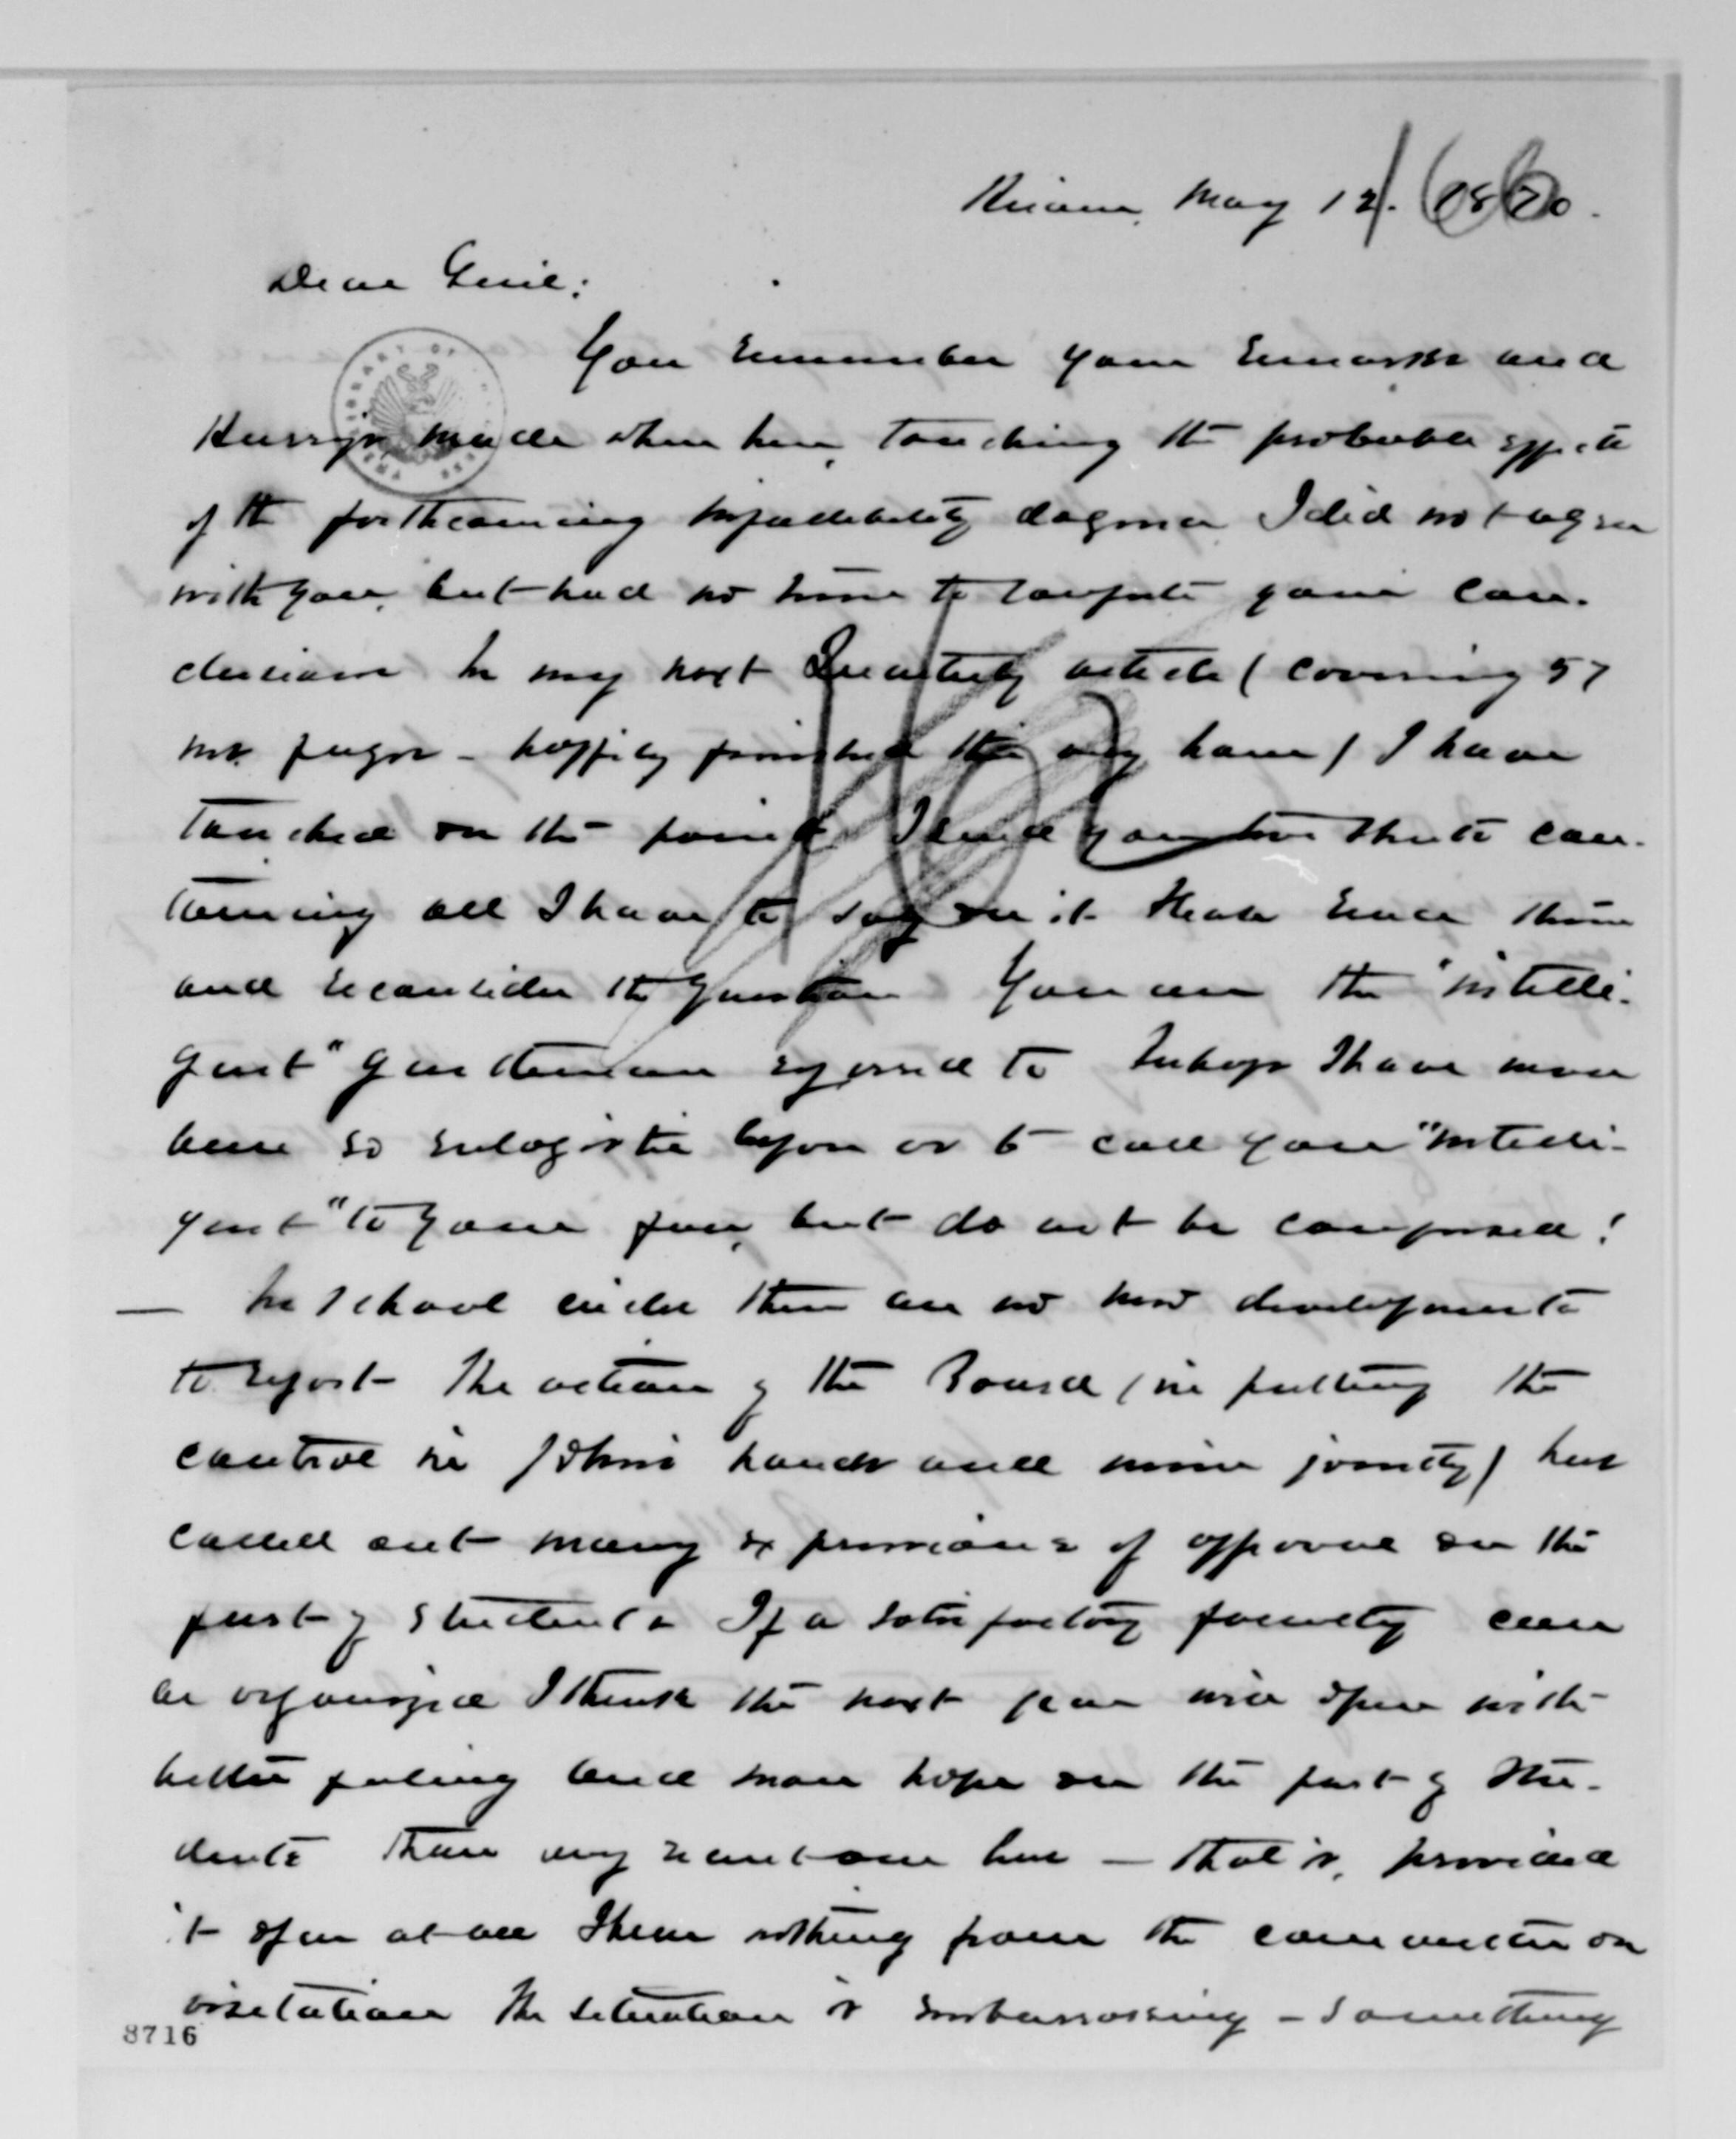 Hiram, May 12. 1870.
Dear Genl:
You remember your remarks and
Harry's, made when here, touching the probable effects
of the forthcoming infallibility dogma. I did not agree
with you, but had no time to your con-
clusions In my next Quarterly article (covering 57
ms. pages - happily finished this very hour) I have
touched on the point. I send you two sheets con-
taining all I have to say on it. Please read them
and reconsider the question You are the "intelli-
gent" gentleman referred to Perhaps I have never
been so eulogistic before as to call you "intelli-
gent" to your face, but do not be confused!
— In school circles there are no new developments
to report The action of the Board (in putting the
control in hands and mine jointly) has
called out many expressions of approval on the
part of students If a satisfactory faculty can
be organized I think the next year will open with
better feeling and more hope on the part of stu-
dents than any recent one has — that is, provided
it open at all I hear nothing from the committee on
visitation The situation is embarrassing - something
8716